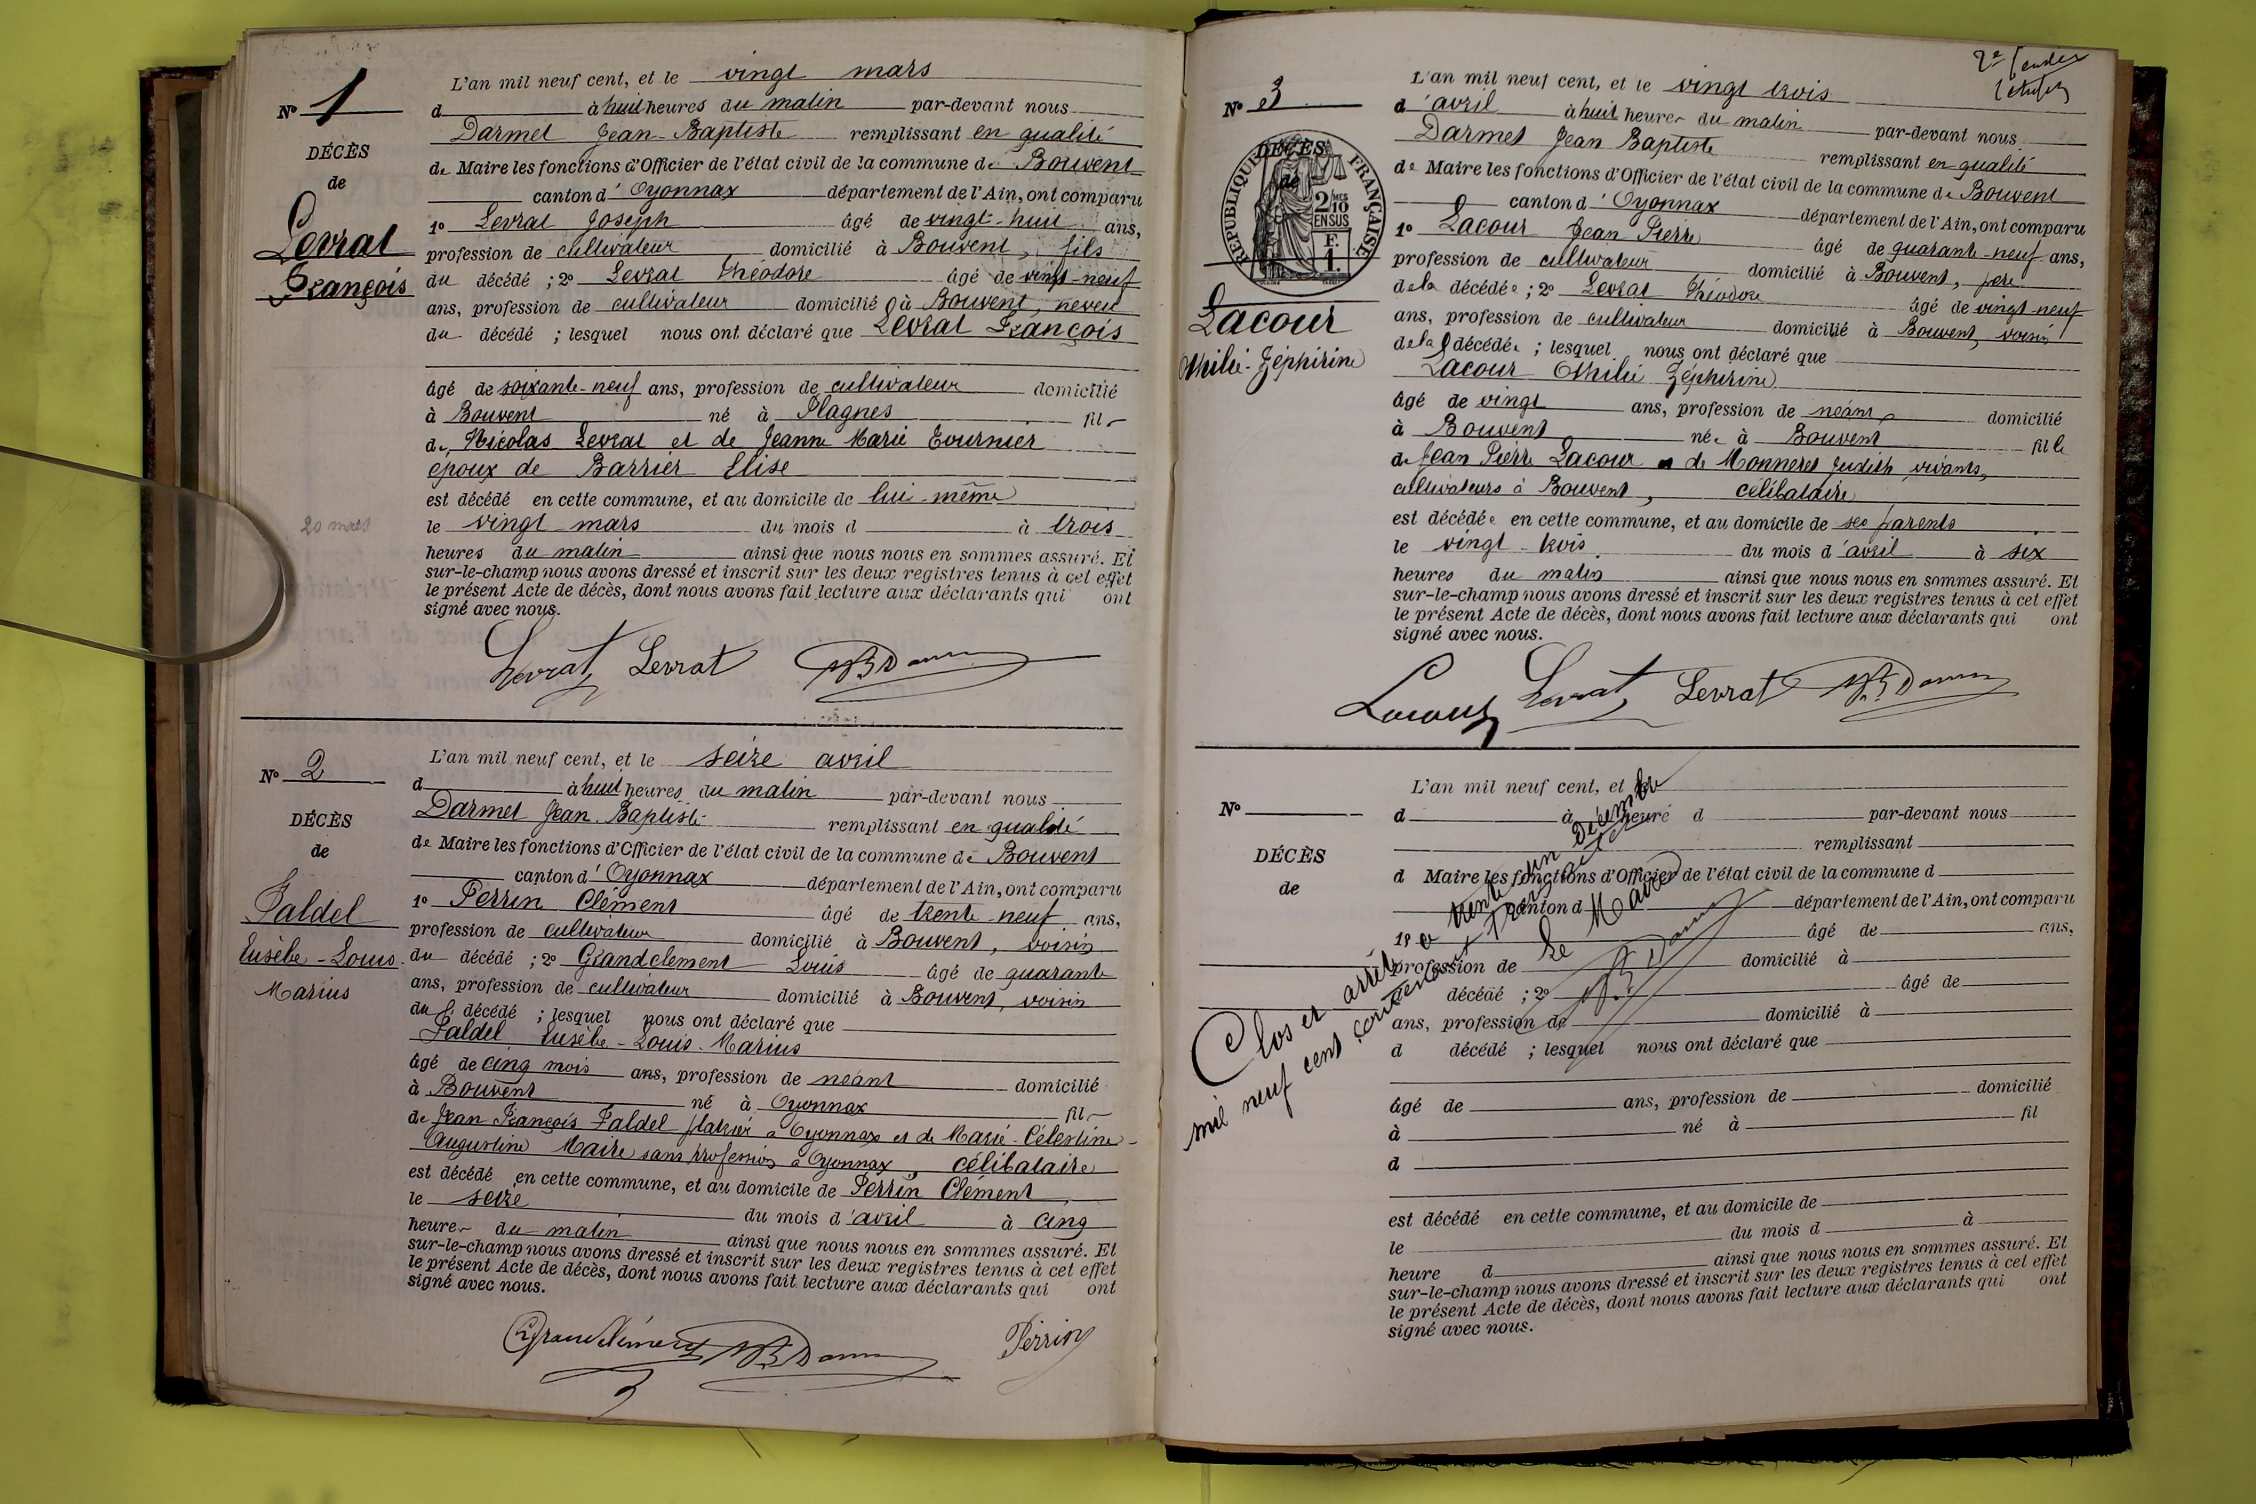 N° 1
DÉCÈS
de
Levrat
François
20 mars
L'an mil neuf cent, et le vingt mars
d à huit heures du matin par-devant nous
Darmet Jean-Baptiste remplissant en qualité
de Maire les fonctions d'Officier de l'état civil de la commune de Bouvent
canton d'Oyonnax département de l'Ain, ont comparu
1° Levrat Joseph âgé de vingt-huit ans,
profession de cultivateur domicilié à Bouvent, fils
du décédé ; 2° Levrat Théodore âgé de vingt-neuf
ans, profession de cultivateur domicilié à Bouvent, neveu
du décédé ; lesquel nous ont déclaré que Levrat François
âgé de soixante-neuf ans, profession de cultivateur domicilié
à Bouvent né à Plagnes fils
de Nicolas Levrat et de Jeanne Marie Tournier
époux de Barrier Elise
est décédé en cette commune, et au domicile de lui-même
le vingt mars du mois d à trois
heures du matin ainsi que nous nous en sommes assuré. Et
sur-le-champ nous avons dressé et inscrit sur les deux registres tenus à cet effet
le présent Acte de décès, dont nous avons fait lecture aux déclarants qui ont
signé avec nous.
Levrat Levrat JB Darmet
N° 2
DÉCÈS
de
Faldel
Eusèbe-Louis
Marius
L'an mil neuf cent, et le seize avril
d à huit heures du matin par-devant nous
Darmet Jean-Baptiste remplissant en qualité
de Maire les fonctions d'Officier de l'état civil de la commune de Bouvent
canton d'Oyonnax département de l'Ain, ont comparu
1° Perrin Clément âgé de trente-neuf ans,
profession de cultivateur domicilié à Bouvent, voisin
du décédé ; 2° Grandclement Louis âgé de quarante
ans, profession de cultivateur domicilié à Bouvent, voisin
du décédé ; lesquel nous ont déclaré que
Faldel Eusèbe-Louis-Marius
âgé de cinq mois ans, profession de néant domicilié
à Bouvent né à Oyonnax fils
de Jean François Faldel platrier à Oyonnax et de Marie-Célestine-
Augustine Maire sans profession à Oyonnax, célibataire
est décédé en cette commune, et au domicile de Perrin Clément,
le seize du mois d'avril à cinq
heures du matin ainsi que nous nous en sommes assuré. Et
sur-le-champ nous avons dressé et inscrit sur les deux registres tenus à cet effet
le présent Acte de décès, dont nous avons fait lecture aux déclarants qui ont
signé avec nous.
Grandclément JB Darmet Perrin
N° 3
DÉCÈS
de
RÉPUBLIQUE FRANÇAISE
2/10
EN SUS
F.
1.
Lacour
Othilie-Zéphirine
L'an mil neuf cent, et le vingt trois
d'avril à huit heures du matin par-devant nous
Darmet Jean Baptiste remplissant en qualité
de Maire les fonctions d'Officier de l'état civil de la commune de Bouvent
canton d'Oyonnax département de l'Ain, ont comparu
1° Lacour Jean Pierre âgé de quarante-neuf ans,
profession de cultivateur domicilié à Bouvent, père
de la décédée ; 2° Levrat Théodore âgé de vingt-neuf
ans, profession de cultivateur domicilié à Bouvent, voisin
de la décédée ; lesquel nous ont déclaré que
Lacour Othilie Zéphirine
âgé de vingt ans, profession de néant domicilié
à Bouvent née à Bouvent fille
de Jean Pierre Lacour et de Monneret Judith vivants,
cultivateurs à Bouvent, célibataire
est décédée en cette commune, et au domicile de ses parents
le vingt-trois du mois d'avril à six
heures du matin ainsi que nous nous en sommes assuré. Et
sur-le-champ nous avons dressé et inscrit sur les deux registres tenus à cet effet
le présent Acte de décès, dont nous avons fait lecture aux déclarants qui ont
signé avec nous.
Lacour Levrat Levrat JB Darmet
N°
DÉCÈS
de
L'an mil neuf cent, et le
d à heure d par-devant nous
remplissant
d Maire les fonctions d'Officier de l'état civil de la commune d
canton d département de l'Ain, ont comparu
1° âgé de ans,
profession de domicilié à
d décédé ; 2° âgé de
ans, profession de domicilié à
d décédé ; lesquel nous ont déclaré que
âgé de ans, profession de domicilié
à né à fil
d
est décédé en cette commune, et au domicile de
le du mois d à
heure d ainsi que nous nous en sommes assuré. Et
sur-le-champ nous avons dressé et inscrit sur les deux registres tenus à cet effet
le présent Acte de décès, dont nous avons fait lecture aux déclarants qui ont
signé avec nous.
Clos et arrêté a trente un décembre
mil neuf cent contenant trois actes
Le Maire
JB Darmet